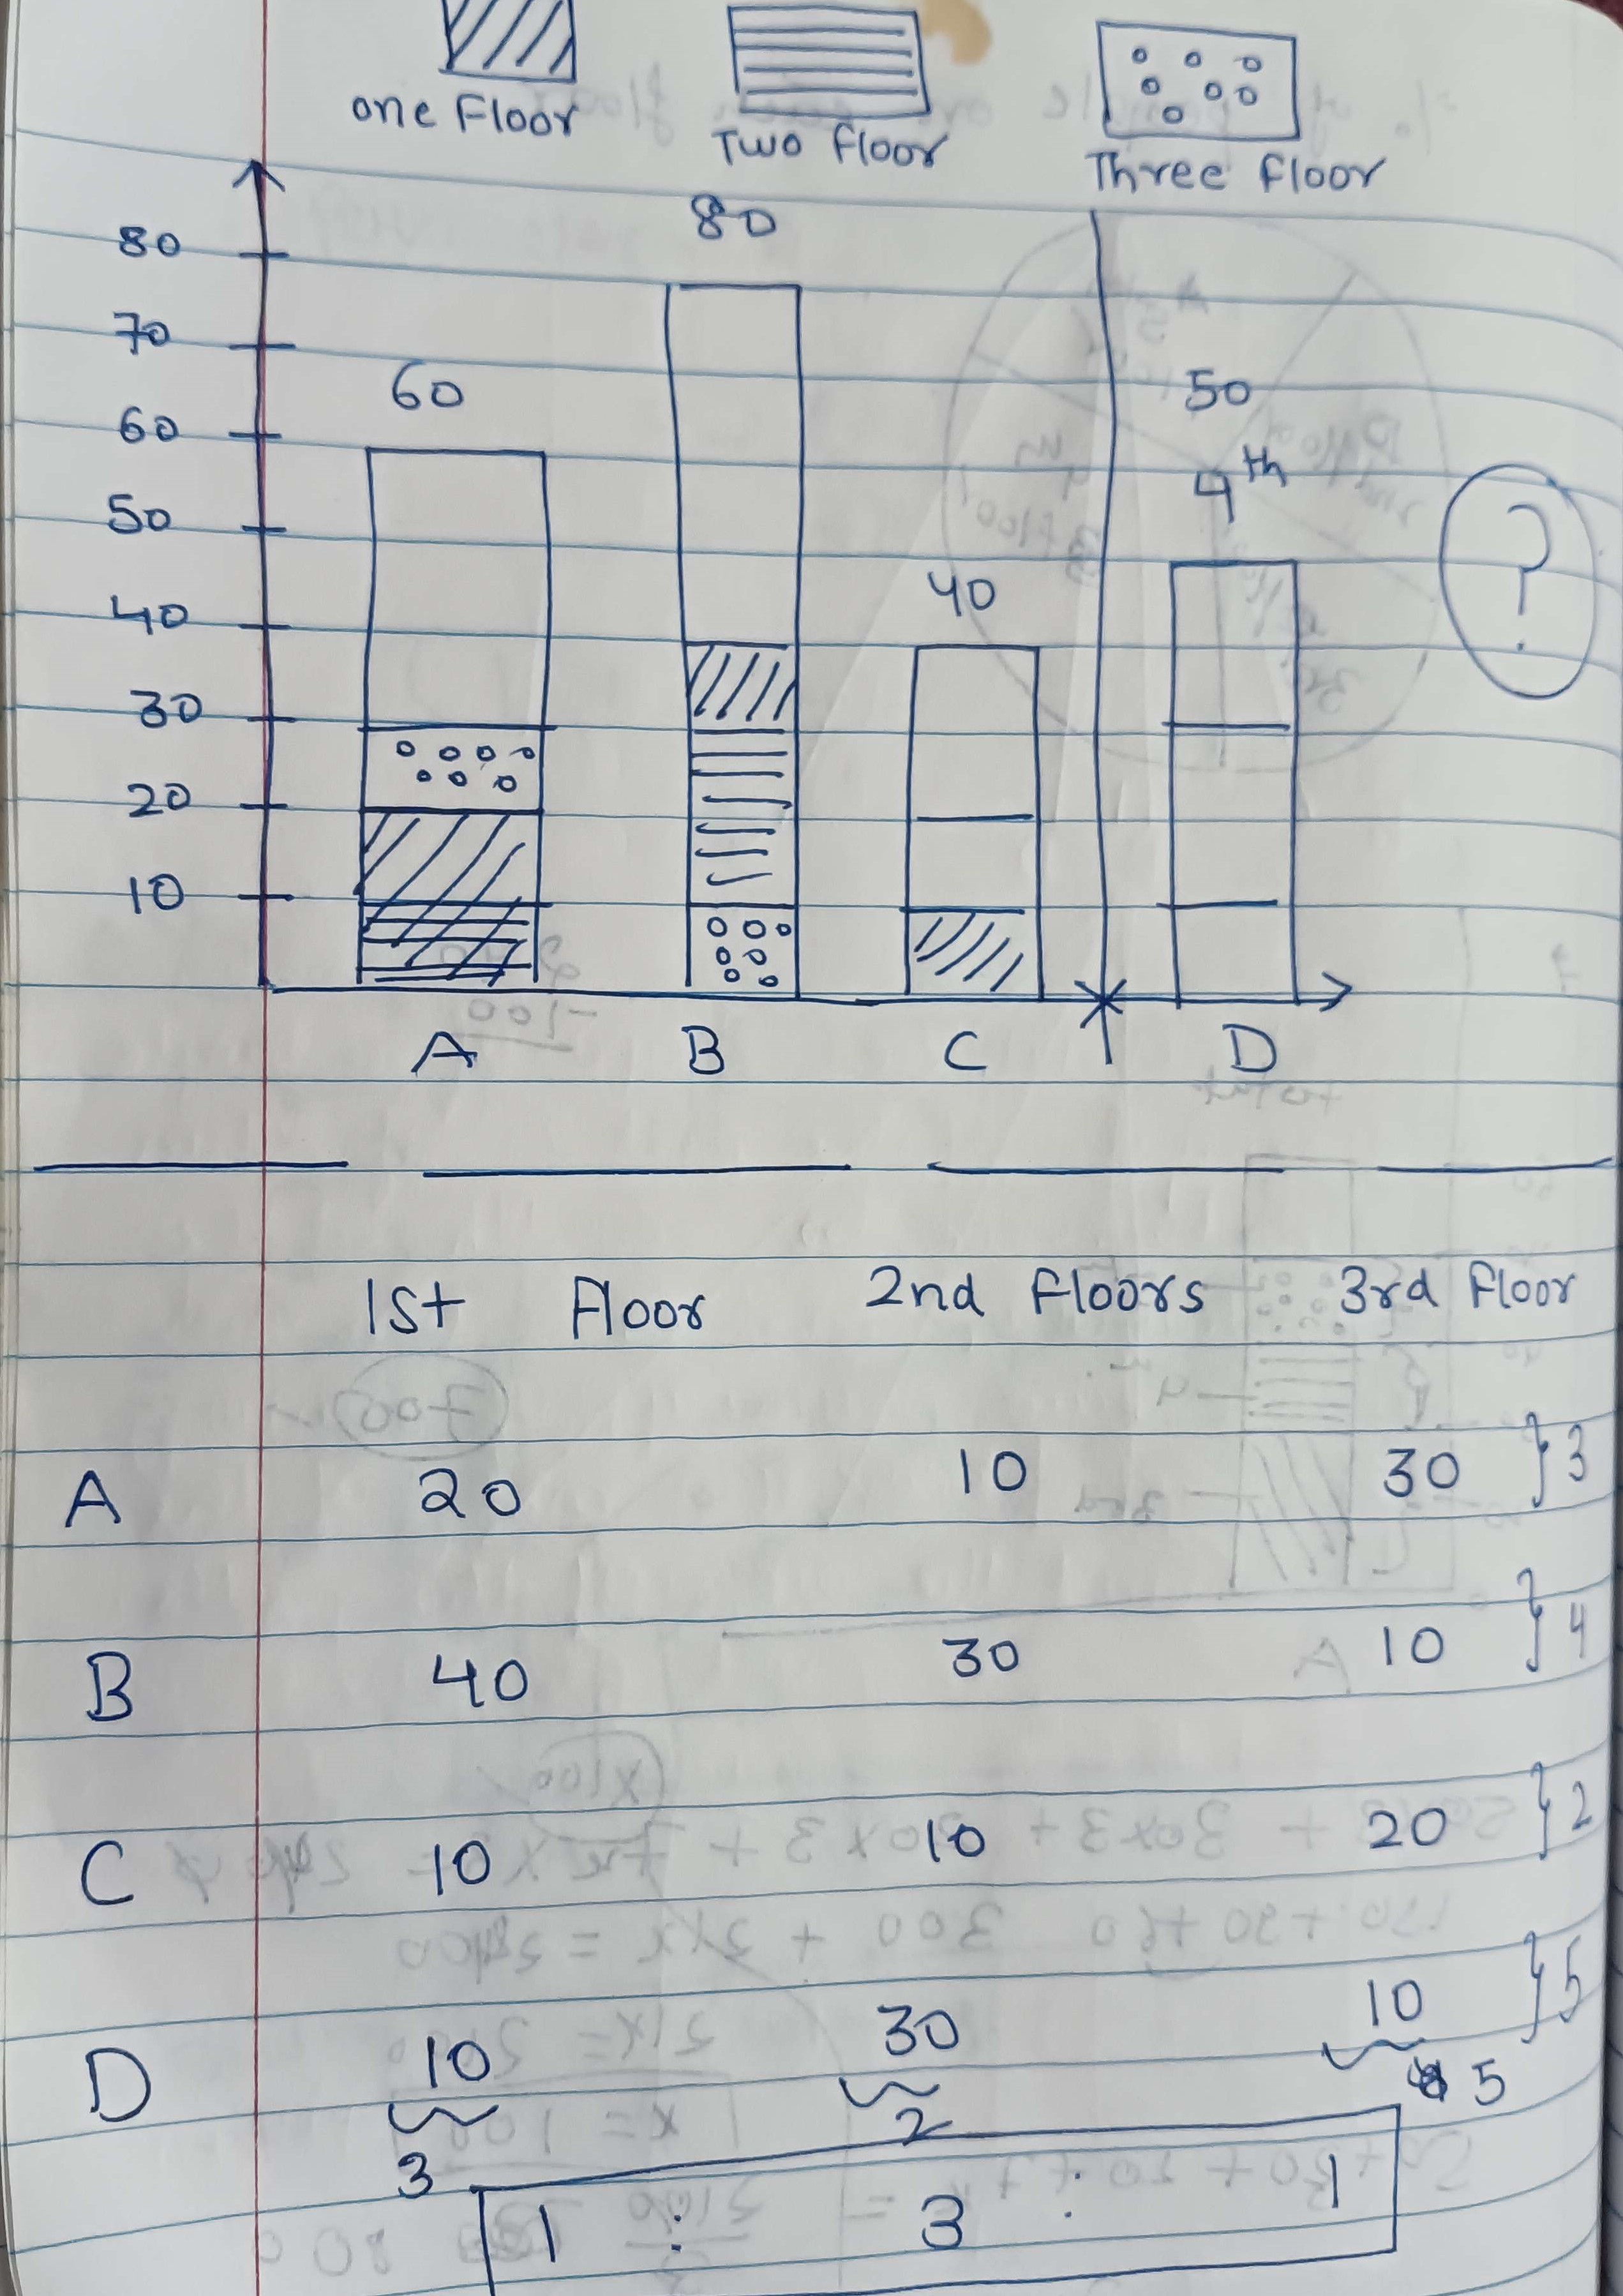 one Floor Two floor Three floor
80
80
70
60
50
60
4th
50
?
40
40
30
20
10
A B C D
1st Floor 2nd floors 3rd floor
A 20 10 30 } 3
B 40 30 10 } 4
C 10 10 20 } 2
D 10 30 10 } 5
3 2 5
1 : 3 : 1